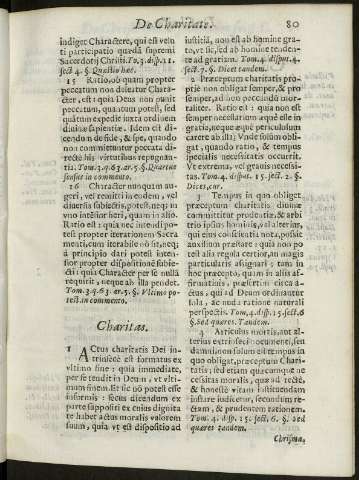 De Charitate.
80
indiget Charactere, qui est velu
ti participatio quædã supremi
Sacerdotij Christi. To. 3. disp. 11.
sect. 4. §. Quæstio hæc.
15 Ratio, ob quam propter
peccatum non deleatur Chara-
cter, est: quia Deus non punit
peccatum, quantum potest, sed
quátum expedit iuxta ordinem
diuinæ sapientiæ. Idem est di-
cendum de fide, & spe, quando
non committuntur peccata di-
rectè his virtutibus repugnan-
tia. Tom. 3. q. 63. ar. 5. §. Quartus
sensus in commento.
16 Character nunquam au-
geri, vel remitti in eodem, vel
diuersis subiectis, potest, neq; in
vno intẽsior fieri, quam in alio.
Ratio est: quia nec intendi po-
test propter iterationem Sacra
menti, cum iterabile nõ sit, neq;
à principio dari potest inten-
sior propter dispositionẽ subie-
cti: quia Character per se nullã
requirit, neque ab illa pendet.
Tom. 3. q. 63. ar. 5. §. Vltimo po-
test in commento.
Charitas.
1 ACtus charitatis Dei in-
trinsecè est formatus ex
vltimo fine: quia immediatè,
per se tendit in Deum, vt vlti-
mum finem. Et sic nõ potest esse
informis: secus dicendum ex
parte suppositi ex cuius dignita
te habet actus moralis valorem
suum, quia vt est dispositio ad
iustitiã, non est ab homine gra-
to, vt sic, sed ab homine tenden-
te ad gratiam. Tom. 4. disput. 4.
sect. 7. §. Dicet tandem.
2 Præceptum charitatis pro-
priè non obligat semper, & pro
semper, ad non peccandũ mor-
taliter. Ratio est: quia non est
semper necessarium æquè ele in
gratia, neque æquè periculosum
carere ab illa: Vnde solùm obli-
gat, quando ratio, & tempus
specialis necessitatis occurrit.
Vt extrema, vel grauis necessi-
tas. Tom. 4. disput. 15. sect. 2. §.
Dices, cur.
3 Tempus in quo obliget
præceptum charitatis diuinæ
committitur prudentiæ, & arbi
trio ipsius hominis, vel alterius,
qui eius conscientiã nota, possit
auxilium præstare: quia non po
test alia regula certior, in magis
particularis assignari; tam in
hoc præcepto, quam in alijs af-
firmatiuis, præsertim circa a-
ctus, qui ad Deum ordinantur
sola, & nuda ratione naturali
perspectis. Tom. 4. disp. 15. sect. 6
§. Sed quæres. Tandem.
4 Articulus mortis, aut al-
terius extrinseci nocumenti, seu
damni, non solùm est tempus in
quo obligat, præceptum Chari-
tatis; sed etiam quæcunque ne
cessitas moralis, quæ ad rectè,
& honestè vitam instituendam
instare iudicetur, secundum re-
ctam, & prudentem rationem.
Tom. 4. disp. 15. sect. 6. §. sed
quæret tandem.
Chrisma,